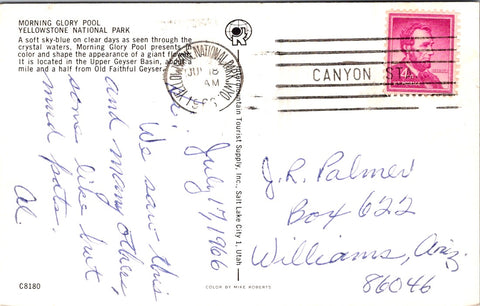 MORNING GLORY POOL
YELLOWSTONE NATIONAL PARK
A soft sky-blue on clear days as seen through the
crystal waters, Morning Glory Pool presents in
color and shape the appearance of a giant flower.
It is located in the Upper Geyser Basin, about a
mile and a half from Old Faithful Geyser.
July 17, 1966
We saw this
and many others,
some like hot
mud pots.
Al
C8180
Mountain Tourist Supply, Inc., Salt Lake City 1, Utah
COLOR BY MIKE ROBERTS
YELLOWSTONE NATIONAL PARK, WYO.
JUL 18
AM
1966
CANYON STA.
J.R. Palmer
Box 622
Williams, Ariz.
86046